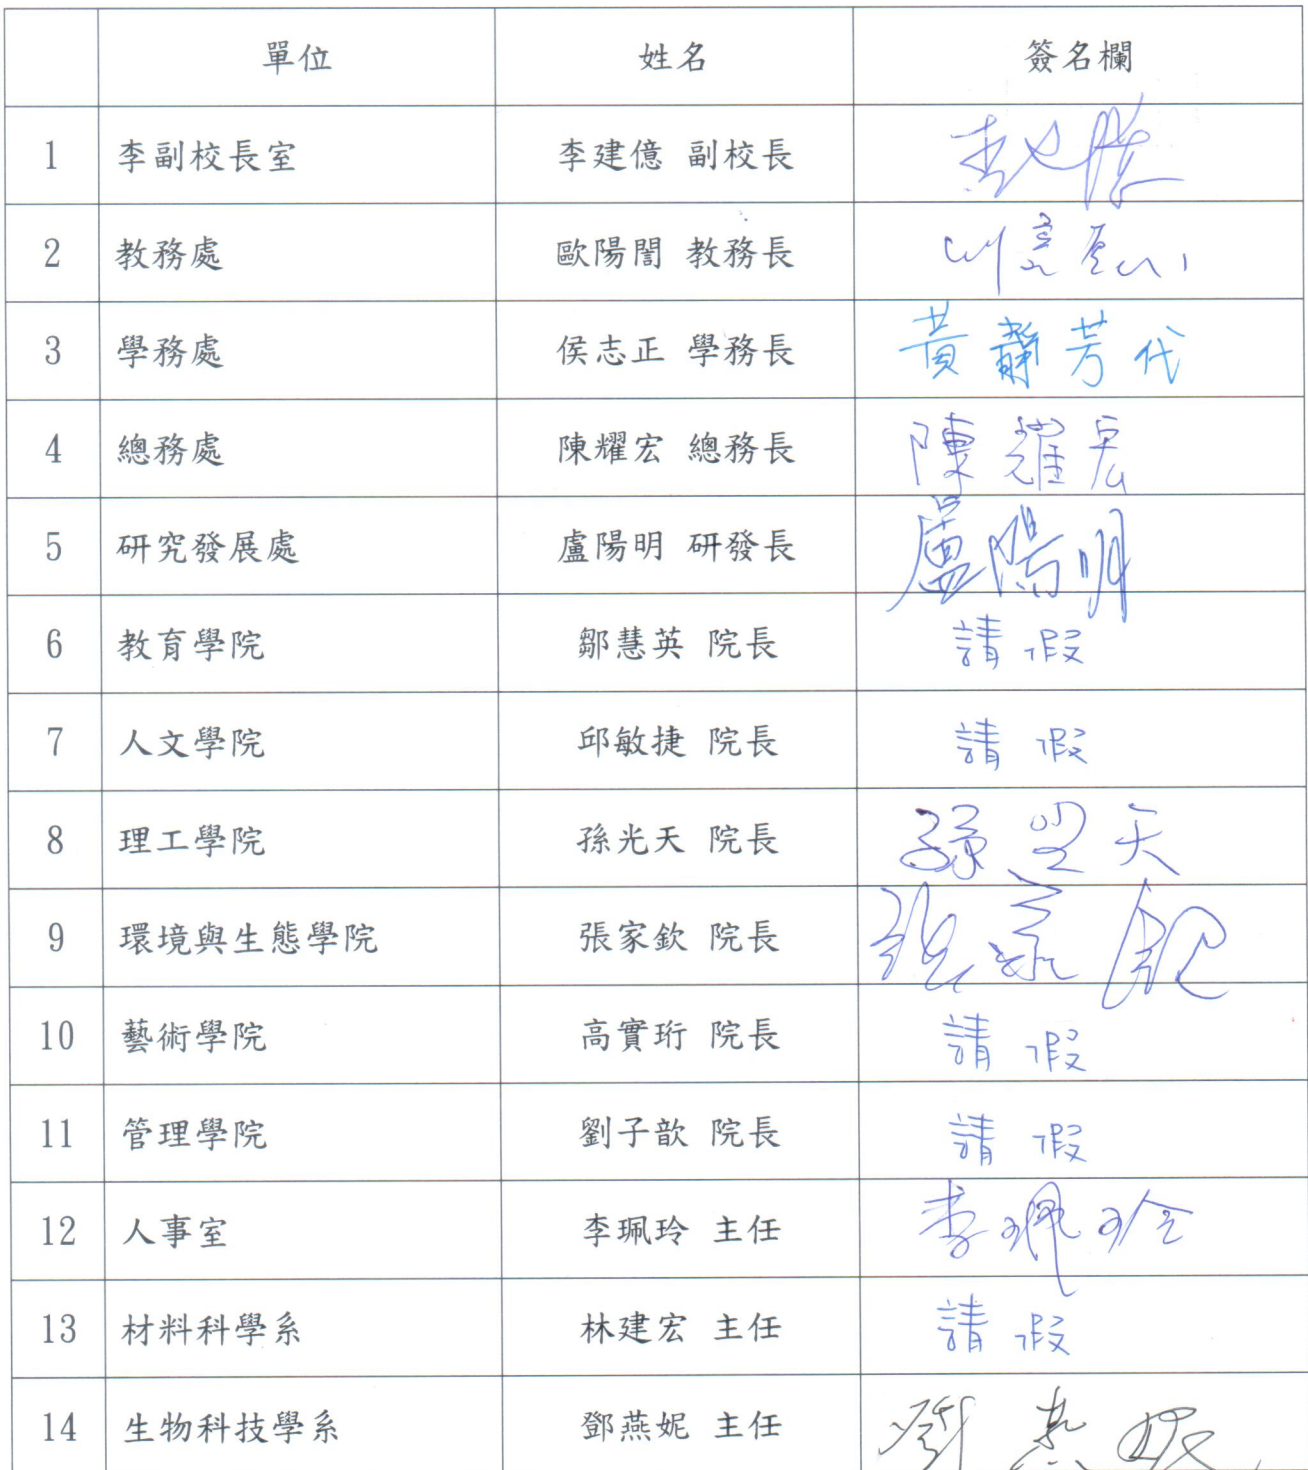 單位 姓名 簽名欄
1 李副校長室 李建億 副校長
2 教務處 歐陽誾 教務長
3 學務處 侯志正 學務長 黃靜芳代
4 總務處 陳耀宏 總務長 陳耀宏
5 研究發展處 盧陽明 研發長 盧陽明
6 教育學院 鄒慧英 院長 請假
7 人文學院 邱敏捷 院長 請假
8 理工學院 孫光天 院長 孫光天
9 環境與生態學院 張家欽 院長 張家欽
10 藝術學院 高實珩 院長 請假
11 管理學院 劉子歆 院長 請假
12 人事室 李珮玲 主任 李珮玲
13 材料科學系 林建宏 主任 請假
14 生物科技學系 鄧燕妮 主任